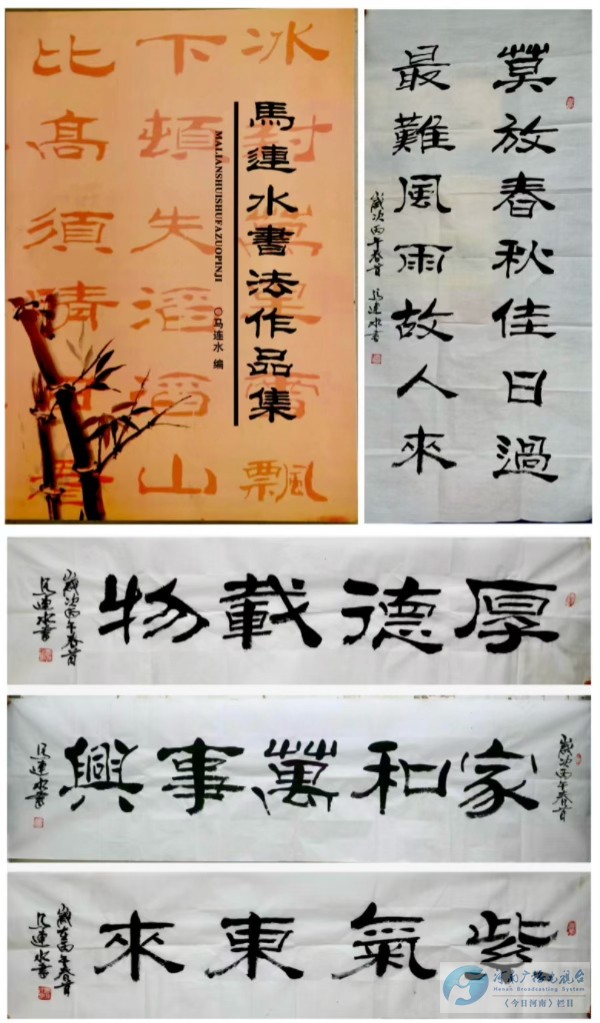 冰封萬里雪飄
下頓失滔滔山
比高須晴日看
馬連水書法作品集
MALIANSHUISHUFAZUOPINJI
马连水 编
莫放春秋佳日過
最難風雨故人來
歲次丙午春首 马連水書
厚德載物
歲次丙午春首
马連水書
歲次丙午春首
家和萬事興
马連水書
紫氣東來
歲在丙午春首
马連水書
河南广播电视台
Henan Broadcasting System
《今日河南》栏目